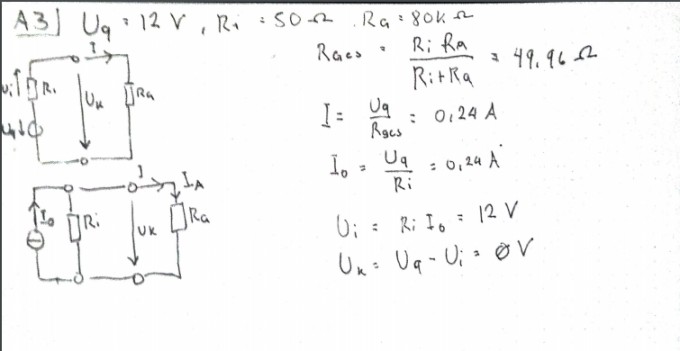 A3) Uq = 12 V, Ri = 50 Ω Ra = 80k Ω
Rges = Ri Ra / Ri + Ra = 49,96 Ω
I = Uq / Rges = 0,24 A
I0 = Uq / Ri = 0,24 A
Ui = Ri I0 = 12 V
Uk = Uq - Ui = 0 V
I
Ui Ri Uk Ra
Uq
I IA
I0 Ri Uk Ra